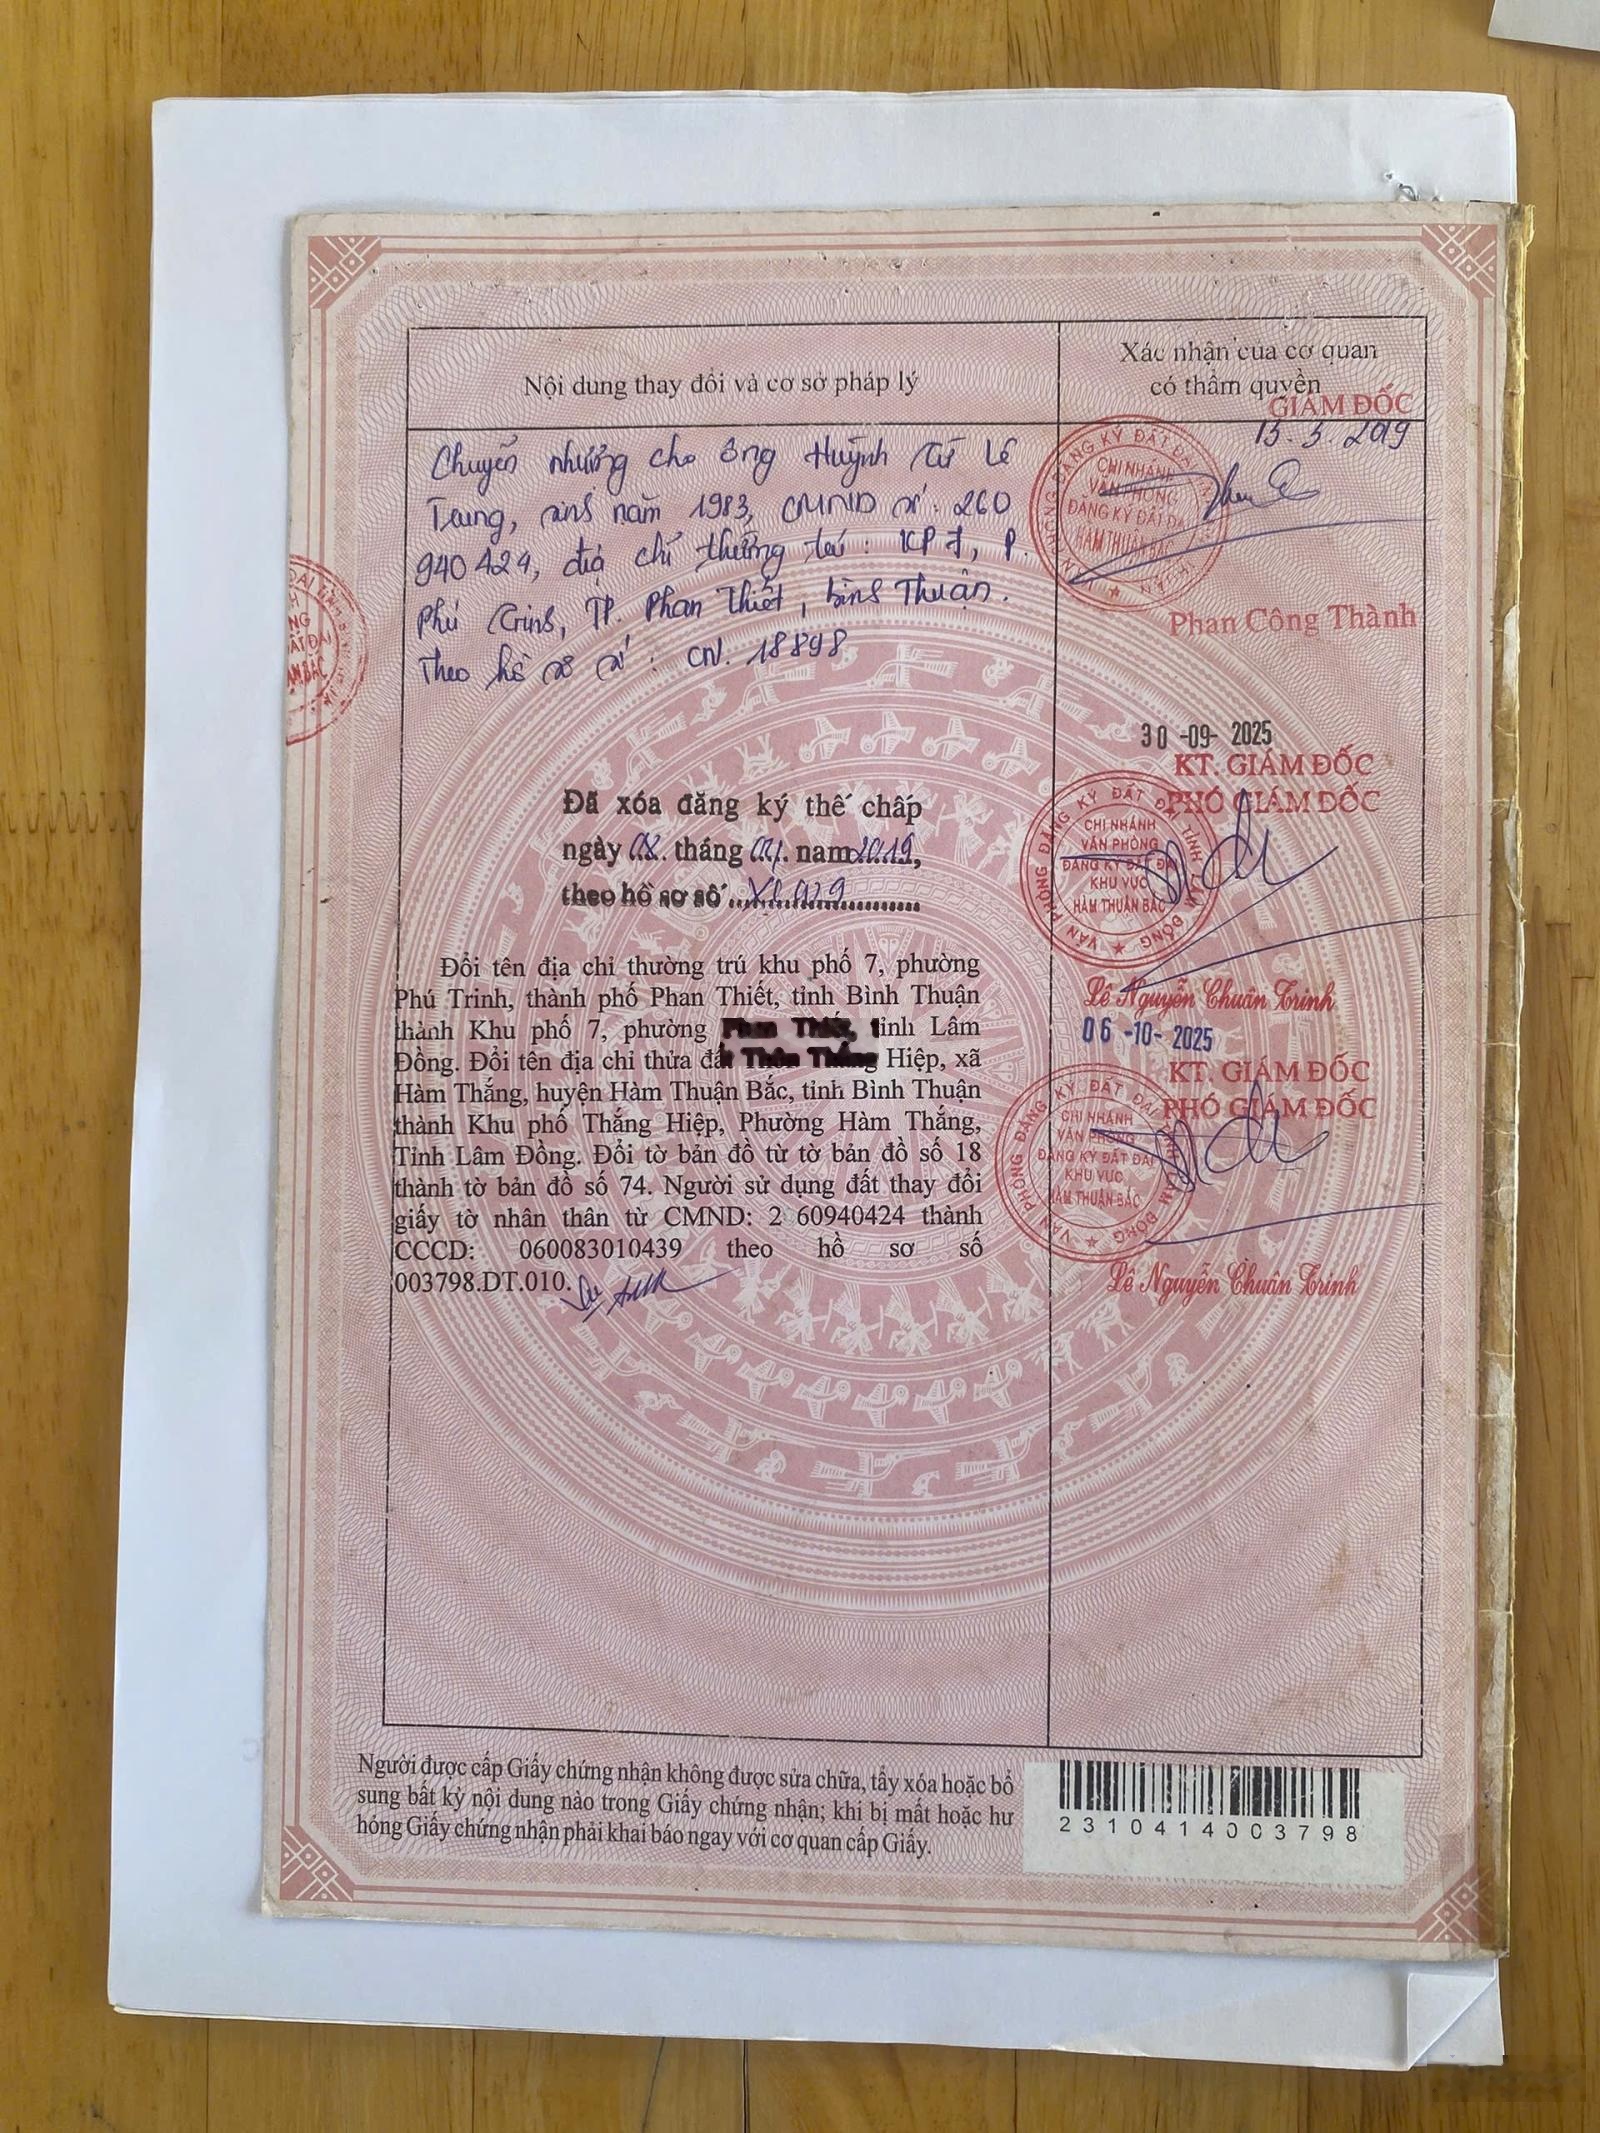 Nội dung thay đổi và cơ sở pháp lý
Xác nhận của cơ quan
có thẩm quyền
Chuyển nhượng cho ông Huỳnh Từ Lê
Trung, sinh năm 1983, CMND số: 260
940424, địa chỉ thường trú: KP 7, P.
Phú Trinh, TP. Phan Thiết, Bình Thuận.
Theo hồ sơ số: CN. 18898
GIÁM ĐỐC
15.3.2019
VĂN PHÒNG ĐĂNG KÝ ĐẤT ĐAI
CHI NHÁNH
VĂN PHÒNG
ĐĂNG KÝ ĐẤT ĐAI
HÀM THUẬN BẮC
Phan Công Thành
Đã xóa đăng ký thế chấp
ngày tháng năm 2019,
theo hồ sơ số
30 -09- 2025
KT. GIÁM ĐỐC
PHÓ GIÁM ĐỐC
VĂN PHÒNG ĐĂNG KÝ ĐẤT ĐAI TỈNH LÂM ĐỒNG
CHI NHÁNH
VĂN PHÒNG
ĐĂNG KÝ ĐẤT ĐAI
KHU VỰC
HÀM THUẬN BẮC
Lê Nguyễn Chuân Trinh
Đổi tên địa chỉ thường trú khu phố 7, phường
Phú Trinh, thành phố Phan Thiết, tỉnh Bình Thuận
thành Khu phố 7, phường Phan Thiết, tỉnh Lâm
Đồng. Đổi tên địa chỉ thửa đất Thôn Thắng Hiệp, xã
Hàm Thắng, huyện Hàm Thuận Bắc, tỉnh Bình Thuận
thành Khu phố Thắng Hiệp, Phường Hàm Thắng,
Tỉnh Lâm Đồng. Đổi tờ bản đồ từ tờ bản đồ số 18
thành tờ bản đồ số 74. Người sử dụng đất thay đổi
giấy tờ nhân thân từ CMND: 2 60940424 thành
CCCD: 060083010439 theo hồ sơ số
003798.DT.010.
06 -10- 2025
KT. GIÁM ĐỐC
PHÓ GIÁM ĐỐC
VĂN PHÒNG ĐĂNG KÝ ĐẤT ĐAI TỈNH LÂM ĐỒNG
CHI NHÁNH
VĂN PHÒNG
ĐĂNG KÝ ĐẤT ĐAI
KHU VỰC
HÀM THUẬN BẮC
Lê Nguyễn Chuân Trinh
Người được cấp Giấy chứng nhận không được sửa chữa, tẩy xóa hoặc bổ
sung bất kỳ nội dung nào trong Giấy chứng nhận; khi bị mất hoặc hư
hỏng Giấy chứng nhận phải khai báo ngay với cơ quan cấp Giấy.
2310414003798